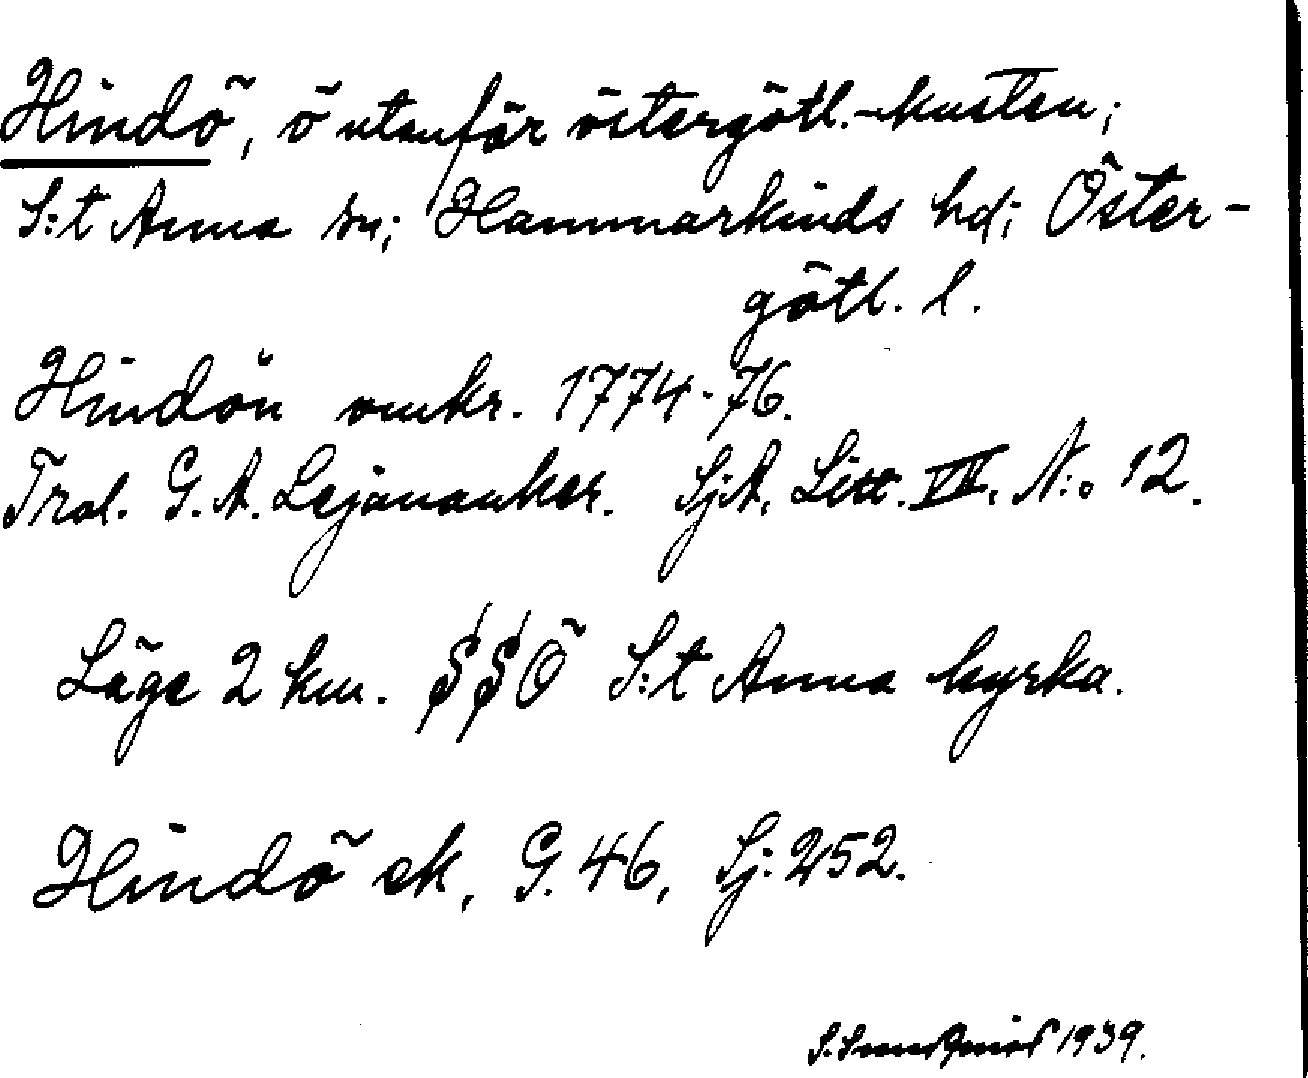 Hindö, ö utanför östergötl.-kusten;
S:t Anna sn; Hammarkinds hd; Öster-
götl. l.
Hindön omkr. 1774-76.
Trol. G. A. Lejonanker. SjA, Litt. VII. N:o 12.
Läge 2 km. SSÖ S:t Anna kyrka.
Hindö ek, G. 46, Sj. 252.
1939.